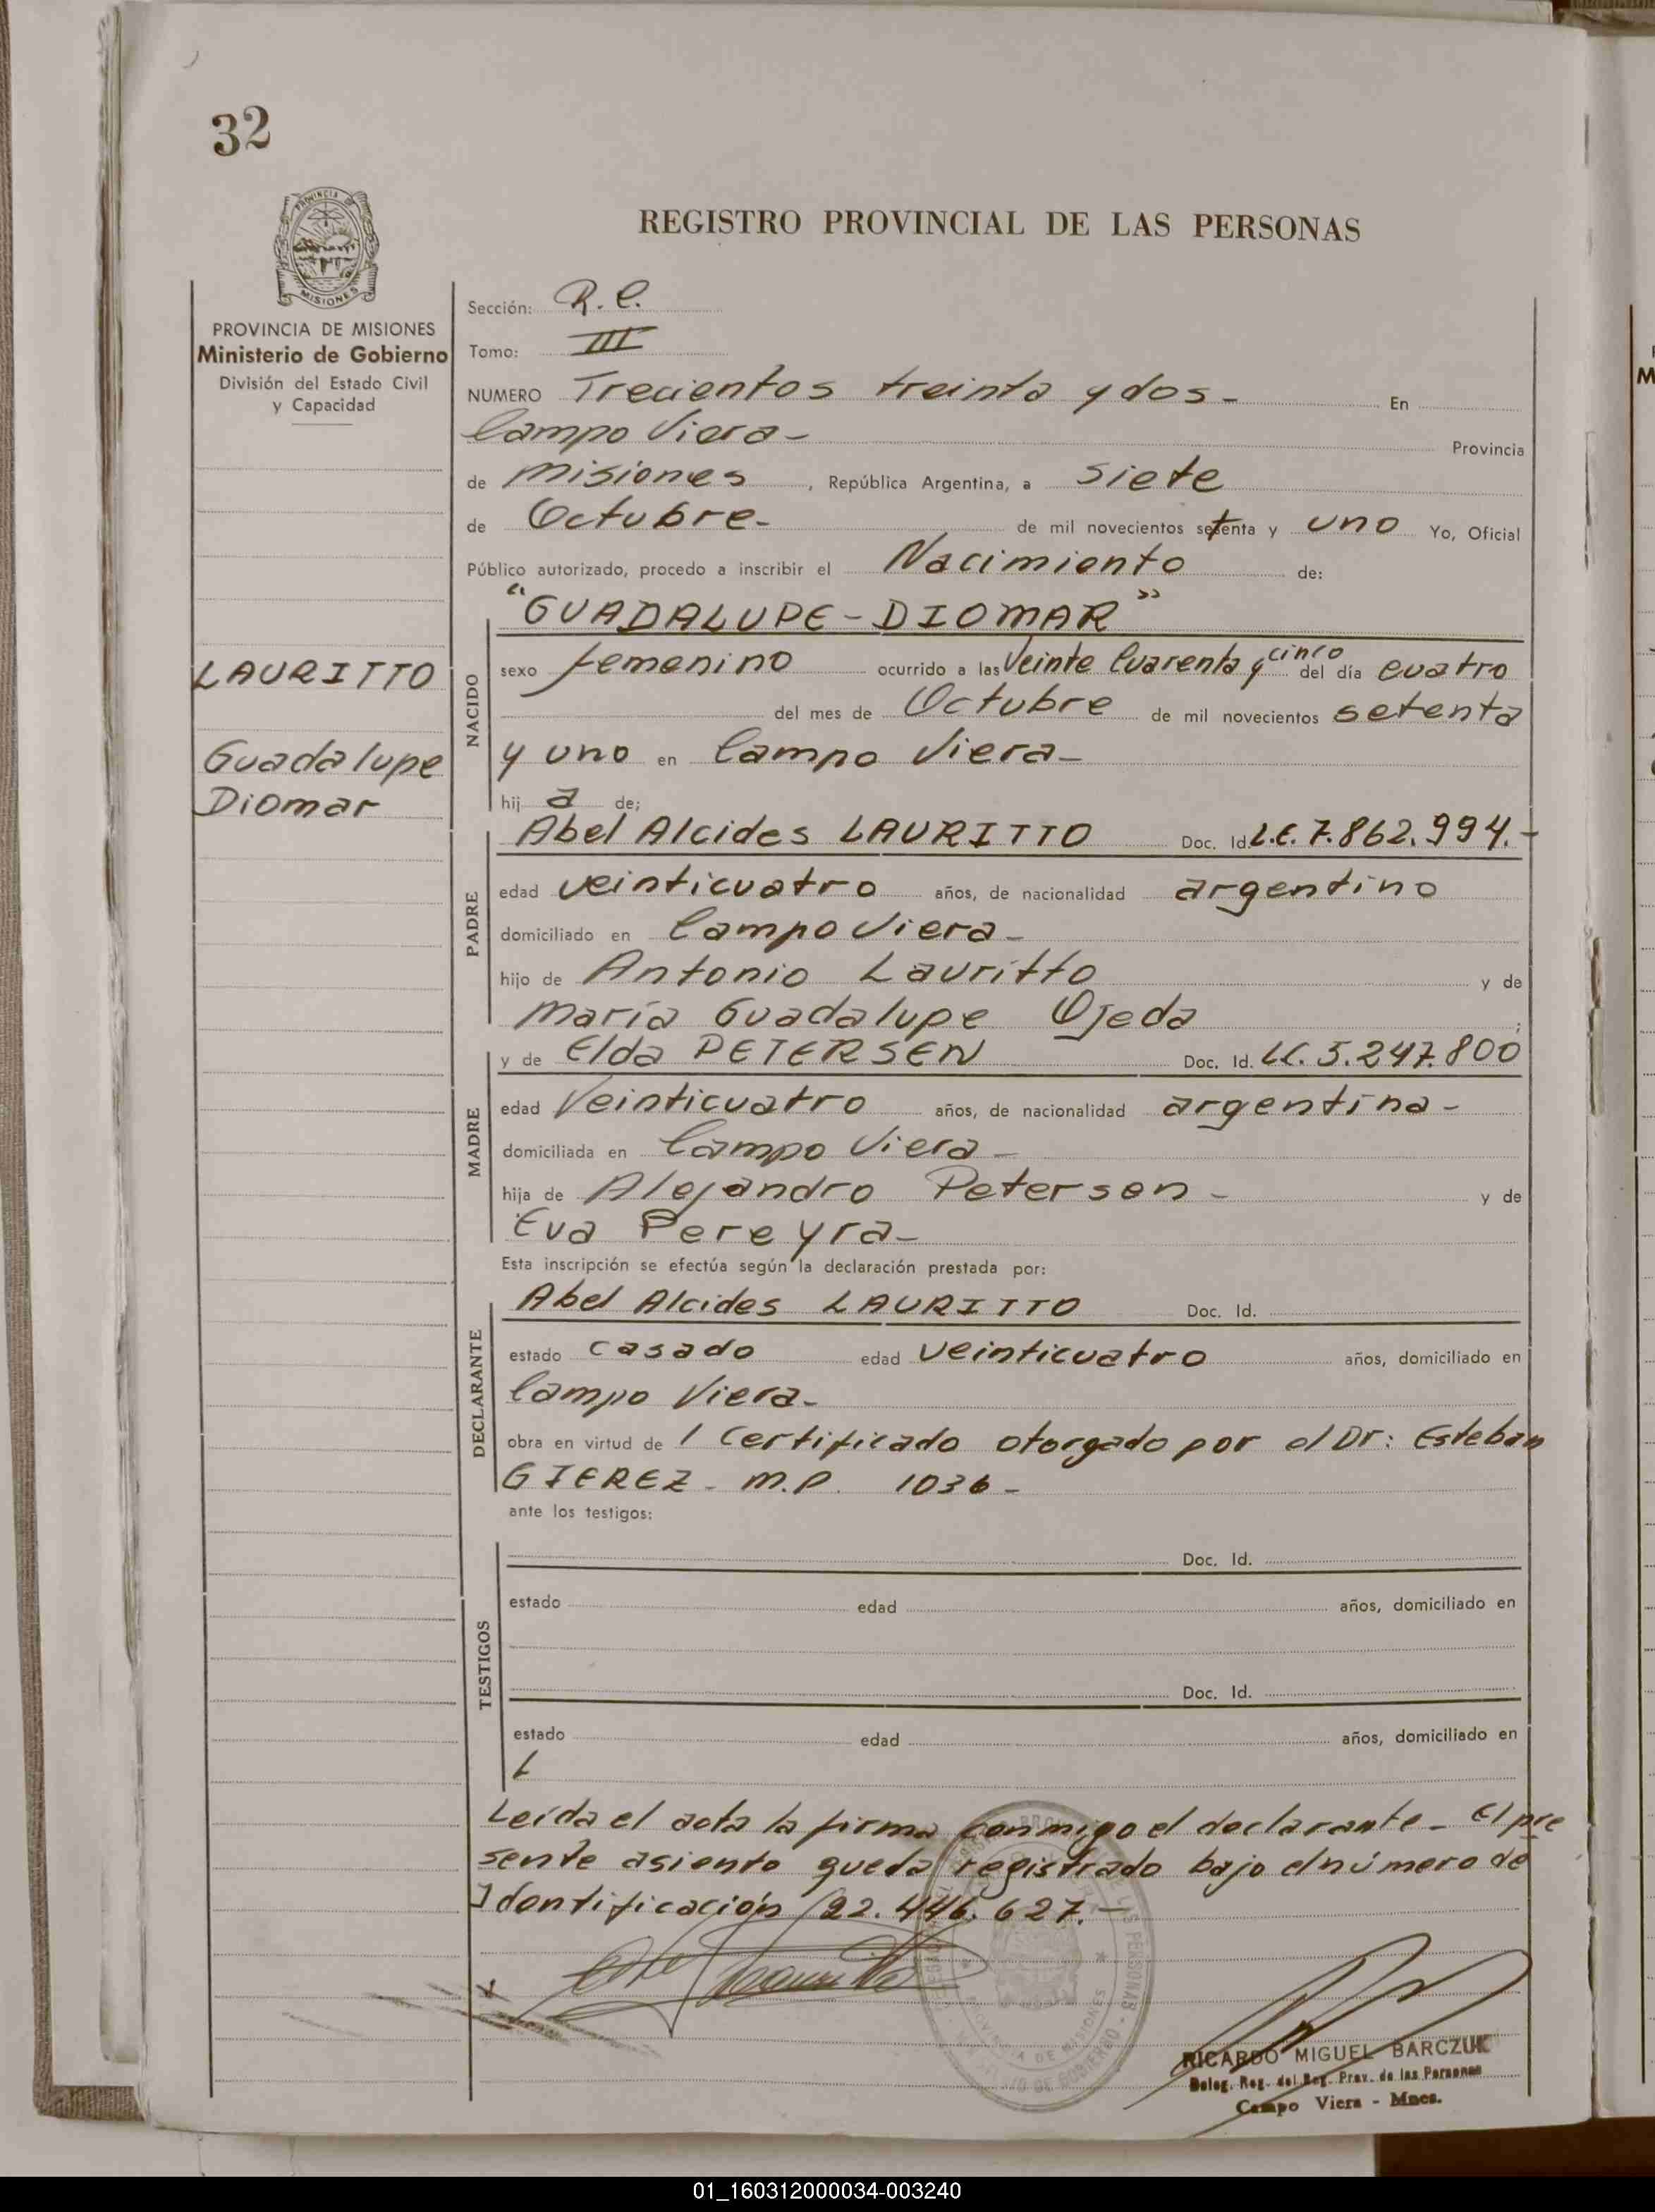 32
PROVINCIA
MISIONES
REGISTRO PROVINCIAL DE LAS PERSONAS
PROVINCIA DE MISIONES
Ministerio de Gobierno
División del Estado Civil
y Capacidad
Sección: R.C.
Tomo: III
NUMERO Trecientos treinta y dos - En
Campo Viera - Provincia
de Misiones, República Argentina, a siete
de Octubre - de mil novecientos setenta y uno Yo, Oficial
Público autorizado, procedo a inscribir el Nacimiento de:
"GUADALUPE - DIOMAR"
LAURITTO
Guadalupe
Diomar
NACIDO
sexo femenino ocurrido a las Veinte Cuarenta y cinco del día cuatro
del mes de Octubre de mil novecientos setenta
y uno en Campo Viera -
hij a de;
PADRE
Abel Alcides LAURITTO Doc. Id. L.E. 7.862.994. -
edad veinticuatro años, de nacionalidad argentino
domiciliado en Campo Viera -
hijo de Antonio Lauritto y de
María Guadalupe Ojeda ;
MADRE
y de Elda PETERSEN Doc. Id. LC. 5.247.800
edad Veinticuatro años, de nacionalidad argentina -
domiciliada en Campo Viera -
hija de Alejandro Petersen - y de
Eva Pereyra -
Esta inscripción se efectúa según la declaración prestada por:
DECLARANTE
Abel Alcides LAURITTO Doc. Id.
estado casado edad veinticuatro años, domiciliado en
Campo Viera -
obra en virtud de 1 Certificado otorgado por el Dr: Esteban
GIEREZ - M.P. 1036 -
ante los testigos:
TESTIGOS
Doc. Id.
estado edad años, domiciliado en
Doc. Id.
estado edad años, domiciliado en
Leída el acta la firma conmigo el declarante - El pre
sente asiento queda registrado bajo el número de
Identificación 22.446.627. -
PROVINCIA DE MISIONES
RICARDO MIGUEL BARCZUK
Deleg. Reg. del Reg. Prov. de las Personas
Campo Viera - Mnes.
01_160312000034-003240